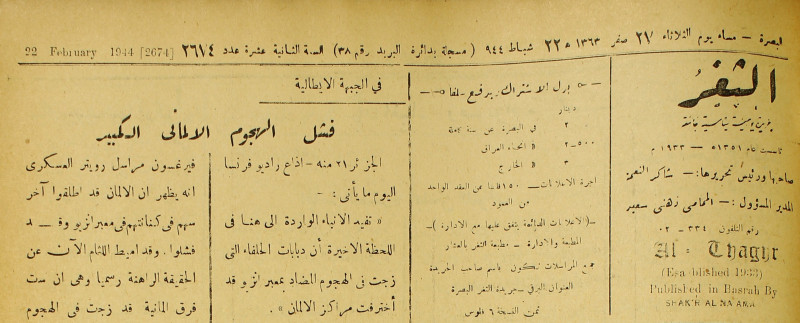 بصرة — مساء يوم الثلاثاء ٢٧ صفر ١٣٦٣ ه ٢٢ شباط ٩٤٤ (مسجلة بدائرة البريد رقم ٣٨) السنة الثانية عشرة عدد ٢٦٧٤ [2674] 22 February 1944
الثغر
جريدة يومية سياسية جامعة
تأسست عام ١٣٥١ه — ١٩٣٣ م
صاحبها ورئيس تحريرها: — شاكر النعمة
المدير المسؤول: — المحامي زهني سعير
رقم التلفون ٣٣٤ — ٠٢
Al - Thaghr
(Esablished 1933)
Published in Basrah By
SHAK'R AL NAAMA
بدل الاشتراك يدفع سلفا
دينار
٢ في البصرة عن سنة كاملة
٢—٥٠٠ « انحاء العراق
٣ « الخارج
اجرة الاعلانات — ١٥٠ فلسا عن العقد الواحد
من العمود
—(الاعلانات يتفق عليها مع الادارة)—
المطبعة والادارة — مطبعة الثغر بالعشار
جميع المراسلات تكون باسم صاحب الجريدة
العنوان البرقي — جريدة الثغر البصرة
ثمن النسخة ٦ فلوس
في الجبهة الايطالية
فشل الهجوم الالماني الكبير
الجزائر ٢١ منه — اذاع راديو فرنسا
اليوم ما يأتي: —
« تفيد الانباء الواردة الى هنا في
اللحظة الاخيرة أن دبابات الحلفاء التي
زجت في الهجوم المضاد بمعبر انزيو قد
أخترقت مراكز الالمان ».
فيرغسون مراسل رويتر العسكري
انه يظهر ان الالمان قد اطلقوا آخر
سهم في كنانتهم في معبر انزيو وقد
فشلوا. وقد اميط اللثام الآن عن
الحقيقة الراهنة رسميا وهي ان ست
فرق المانية قد زجت في الهجوم